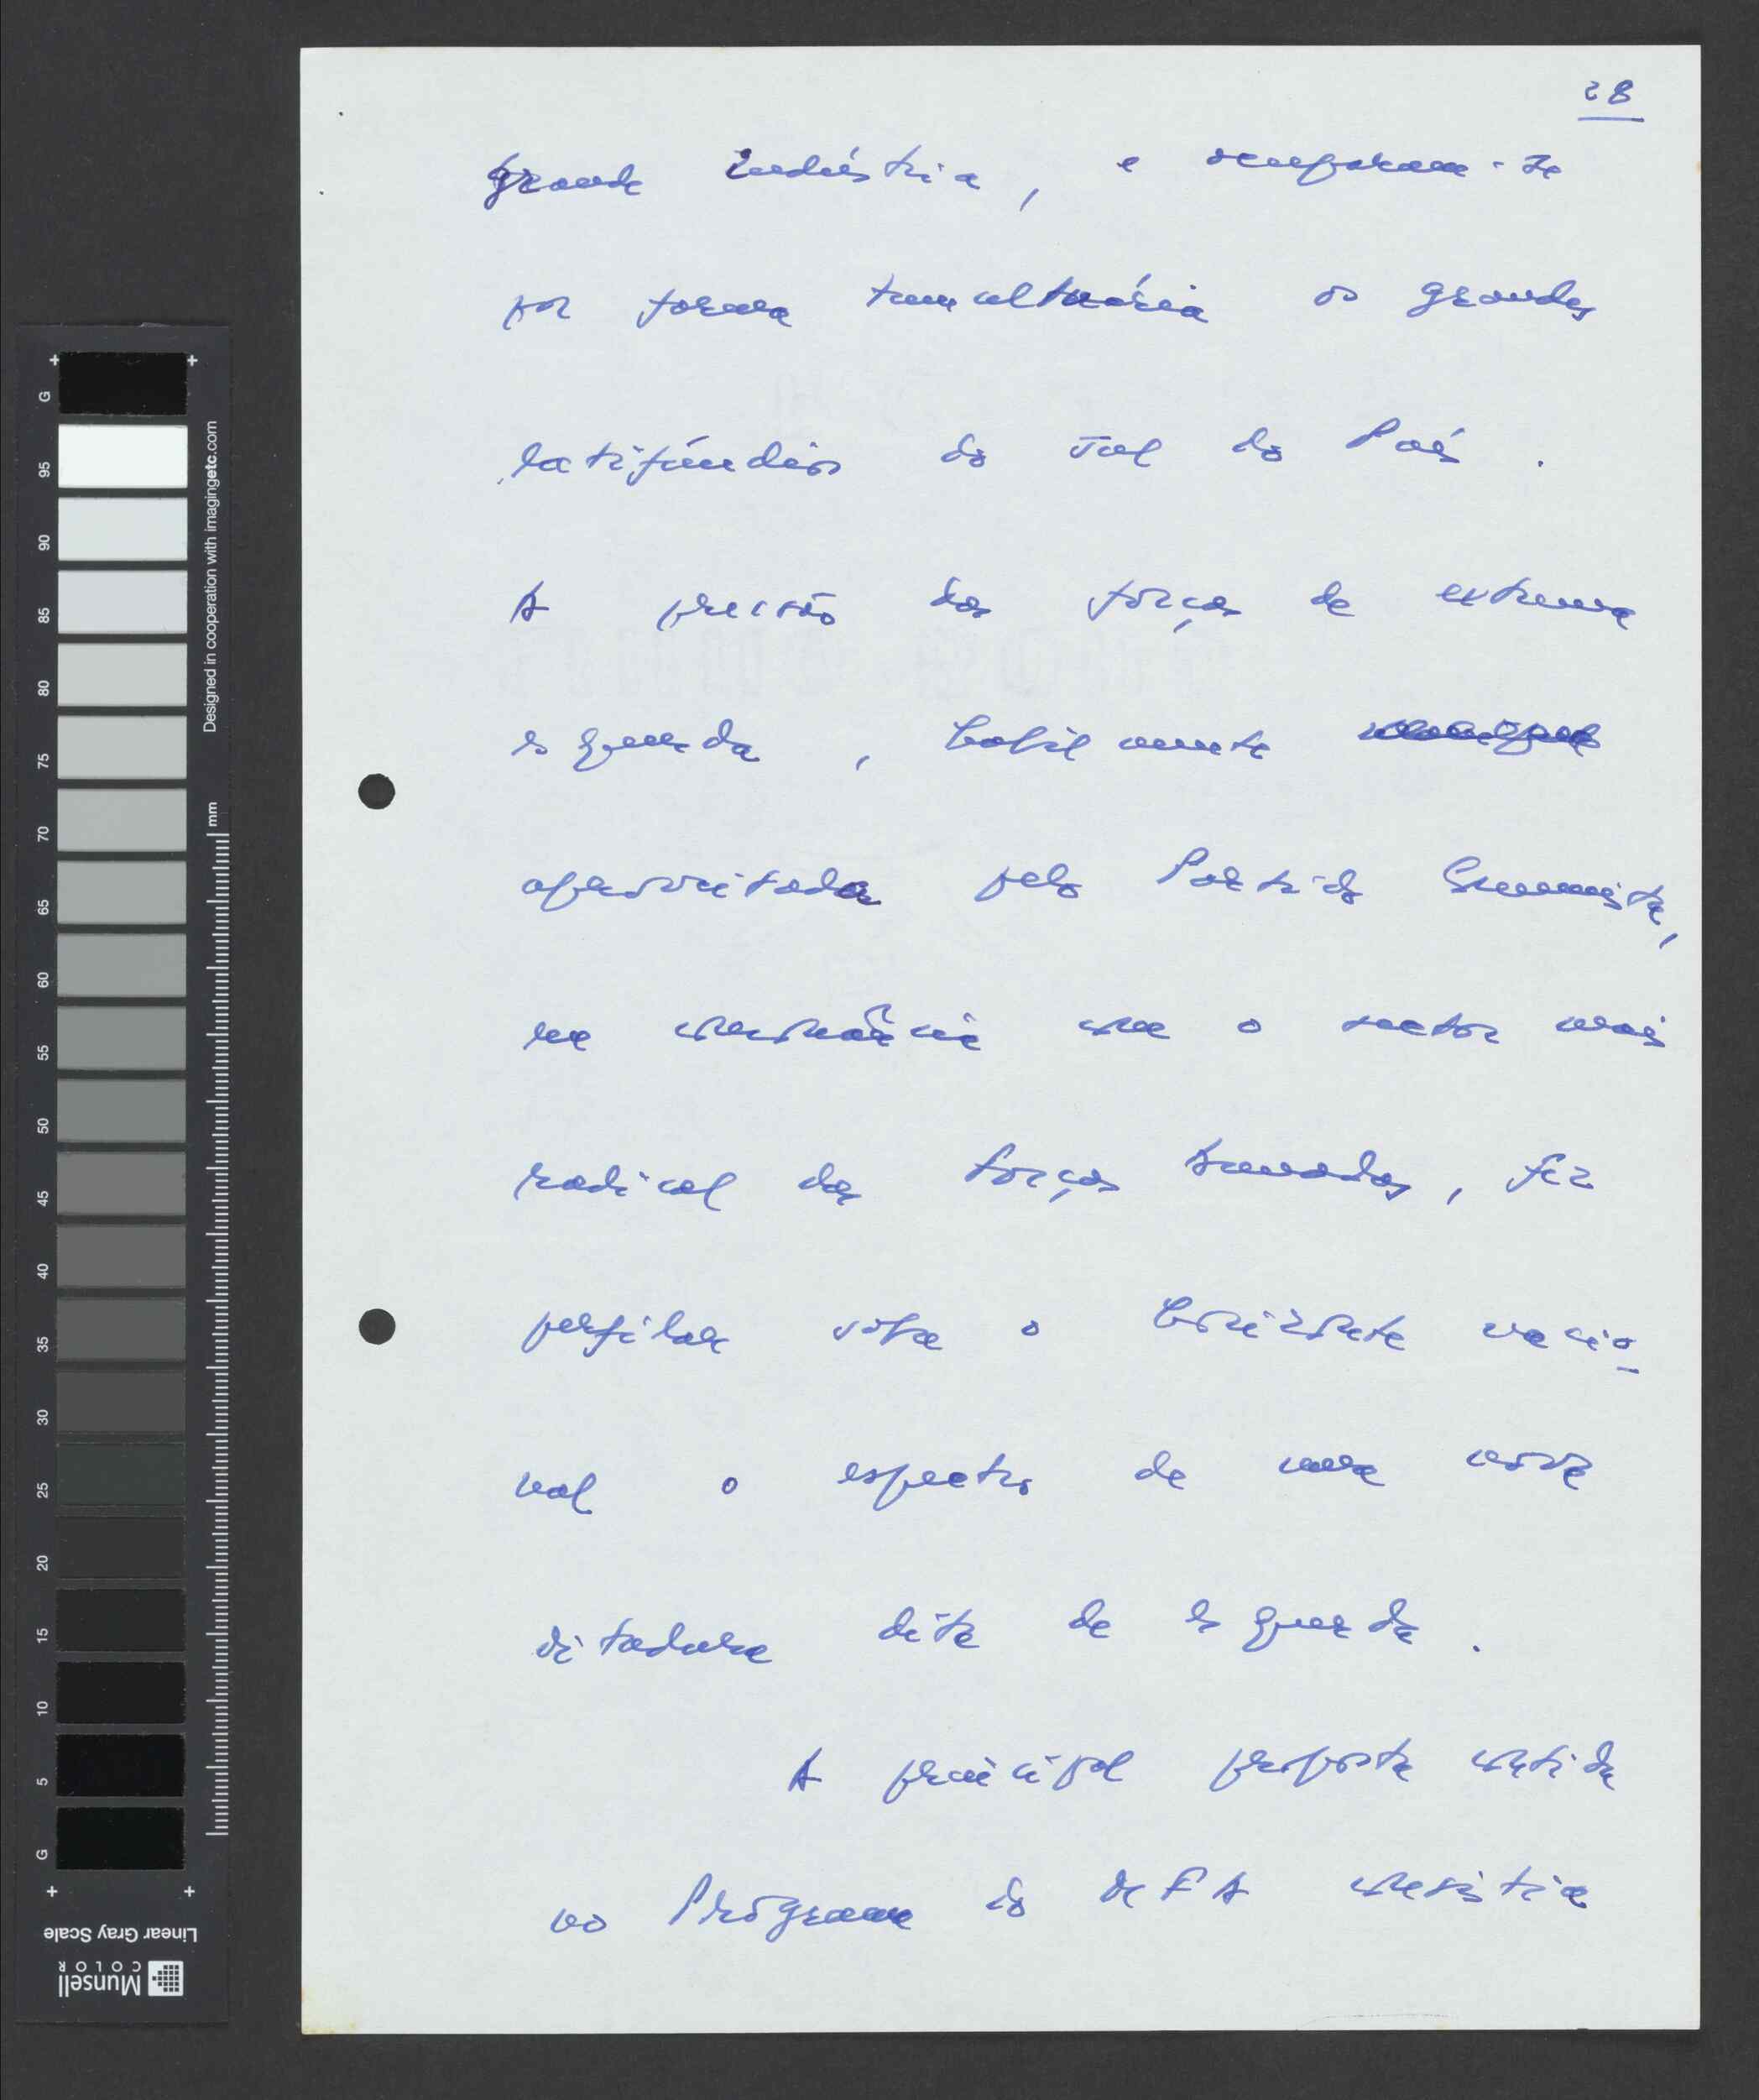 28
grande indústria, e ocuparam-se
por forma tumultuária os grandes
latifúndios do sul do País.
A pressão das forças de extrema
esquerda, habilmente
aproveitada pelo Partido Comunista,
em consonância com o sector mais
radical das Forças Armadas, fez
perfilar sobre o horizonte nacio-
nal o espectro de uma nova
ditadura dita de esquerda.
A principal proposta contida
no Programa do MFA consistia
Designed in cooperation with imagingetc.com
mm
G 95 90 85 80 75 70 65 60 55 50 45 40 35 30 25 20 15 10 5 G
Linear Gray Scale
Munsell
COLOR